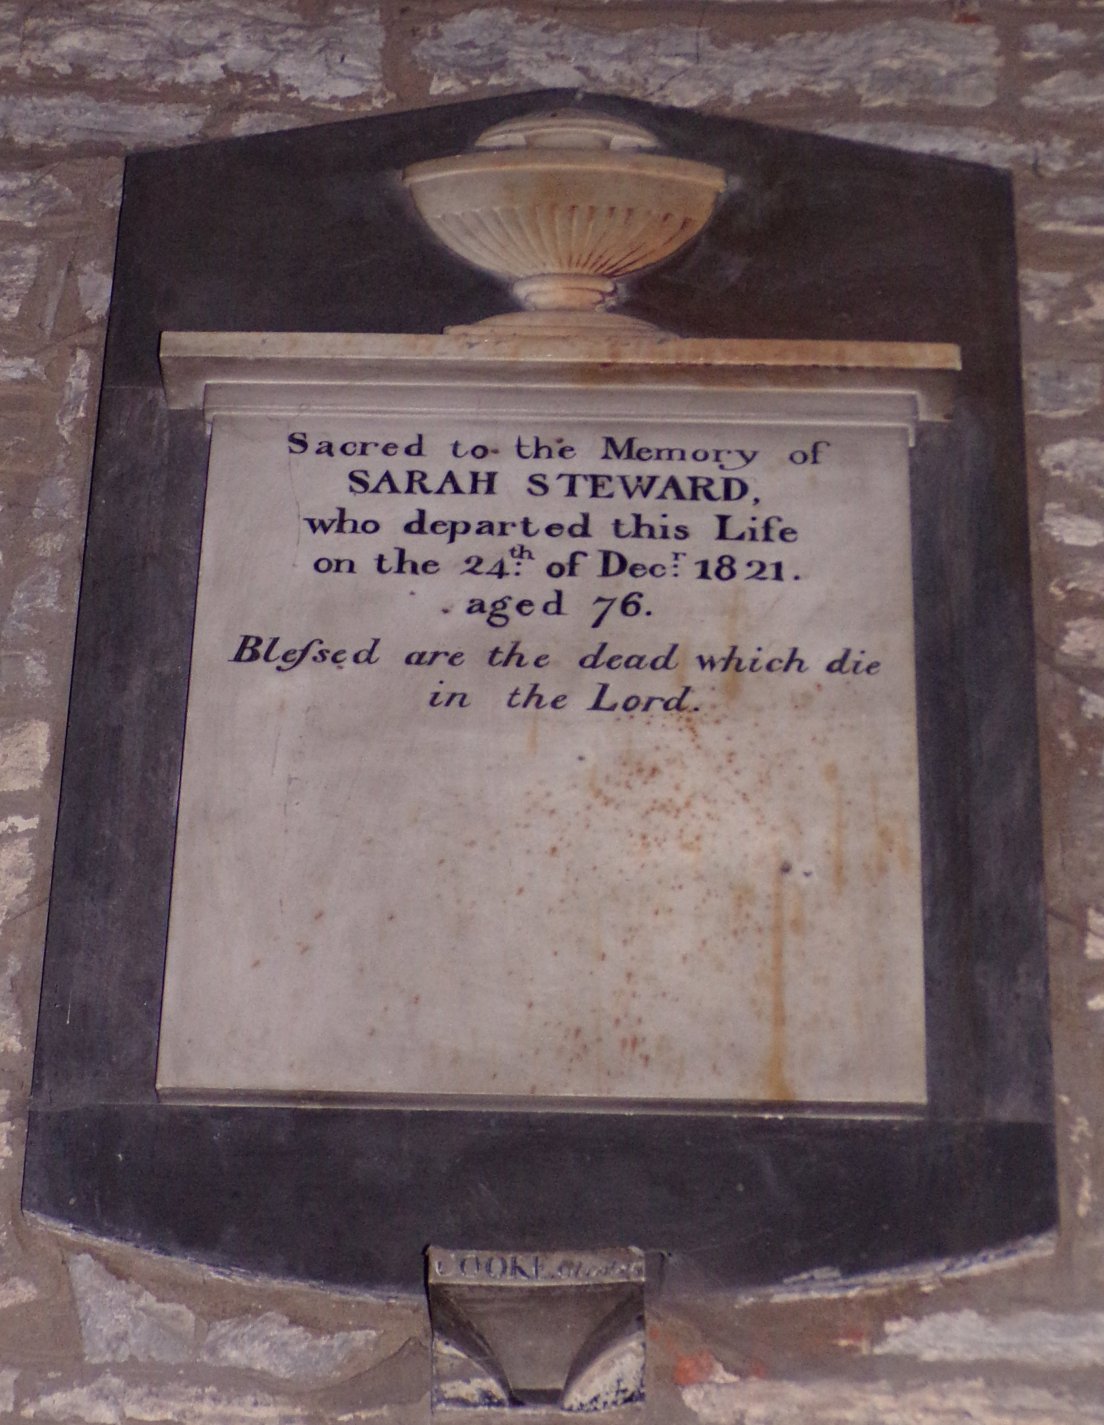 Sacred to the Memory of
SARAH STEWARD,
who departed this Life
on the 24th. of Decr. 1821.
aged 76.
Bleſsed are the dead which die
in the Lord.
COOKE